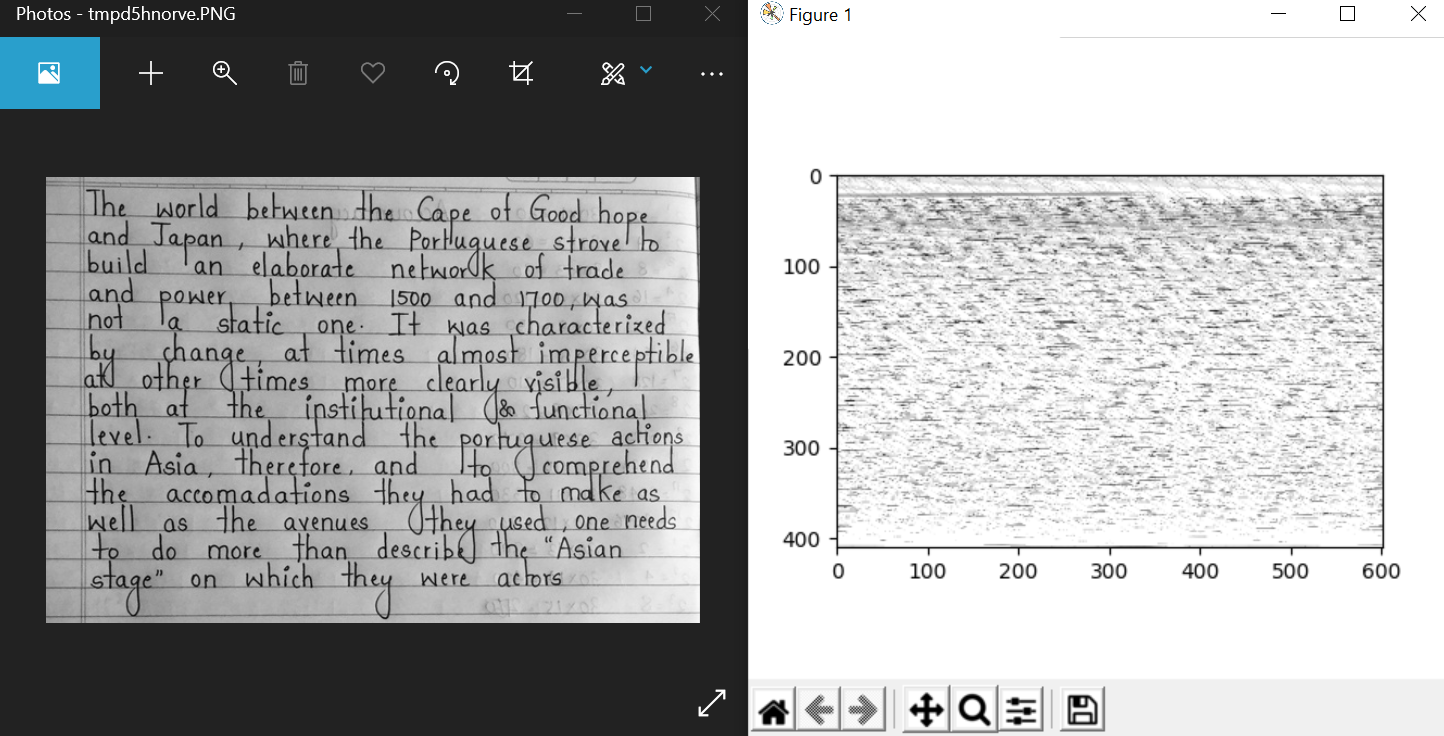 Photos - tmpd5hnorve.PNG
Figure 1
The world between the Cape of Good hope
and Japan, where the Portuguese strove to
build an elaborate network of trade
and power, between 1500 and 1700, was
not a static one. It was characterized
by change, at times almost imperceptible
at other times more clearly visible,
both at the institutional & functional
level. To understand the portuguese actions
in Asia, therefore, and to comprehend
the accomadations they had to make as
well as the avenues they used, one needs
to do more than describe the "Asian
stage" on which they were actors
0
100
200
300
400
0 100 200 300 400 500 600